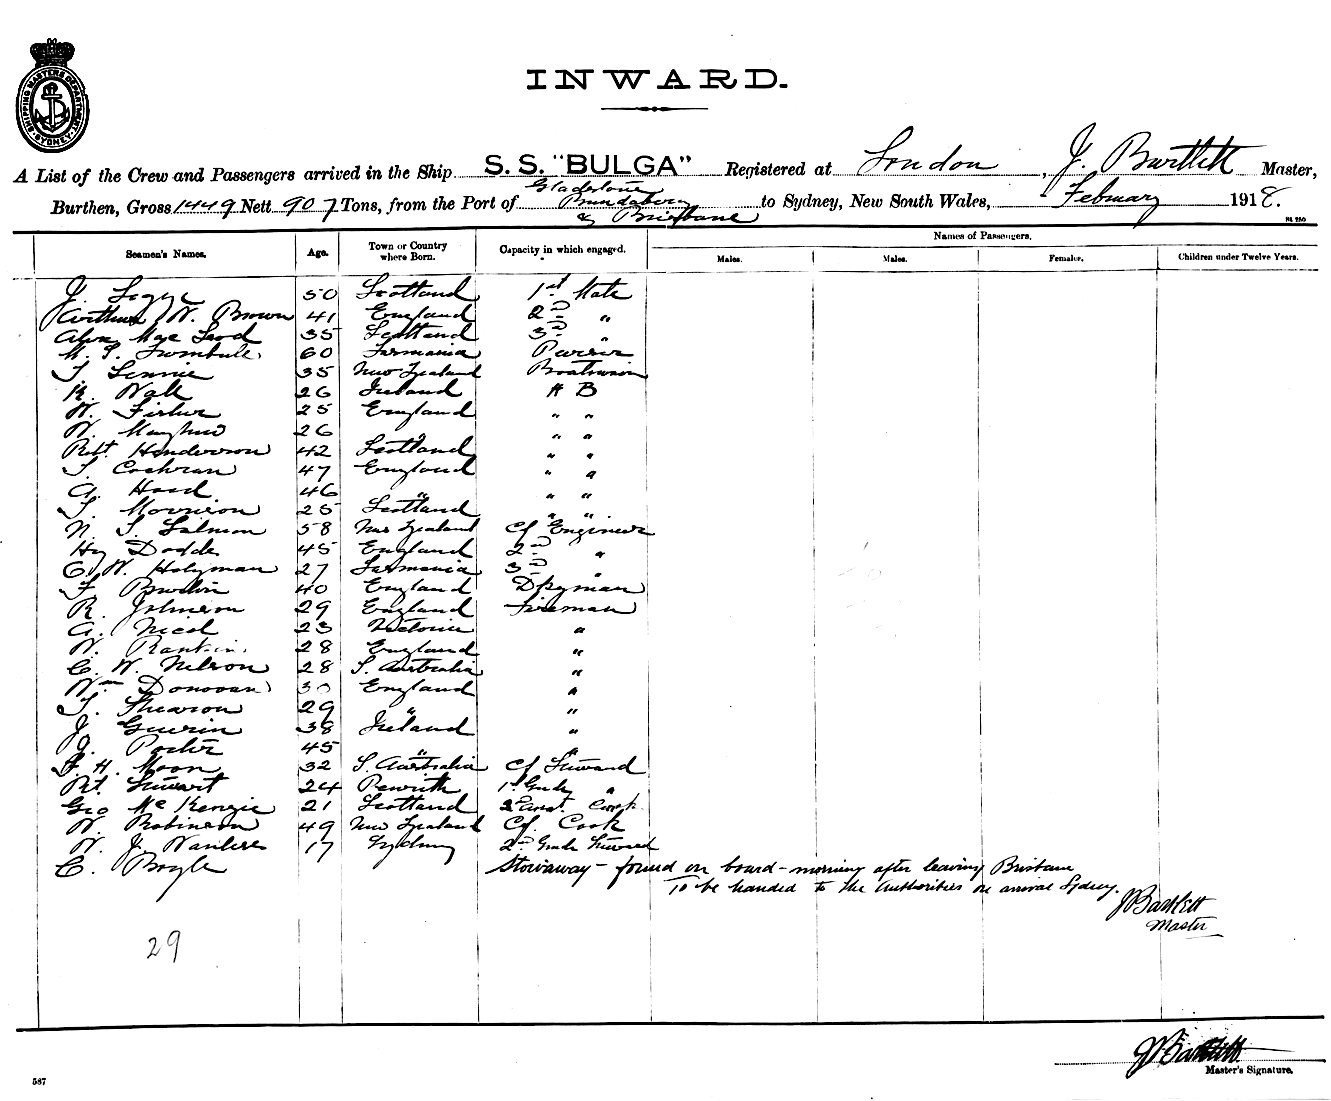 SHIPPING MASTERS DEPARTMENT
SYDNEY
INWARD.
A List of the Crew and Passengers arrived in the Ship S. S. "BULGA" Registered at London, J. Bartlett Master,
Gladstone
Burthen, Gross 1449 Nett 907 Tons, from the Port of Bundaberg to Sydney, New South Wales, February 1918.
& Brisbane
Seamen's Names. Age. Town or Country where Born. Capacity in which engaged. Names of Passengers.
Males. Males. Females. Children under Twelve Years.
J. 50 Scotland 1st Mate
Arthur W. Brown 41 England 2nd "
Alex Mac Leod 35 Scotland 3rd "
M. 60 Tasmania Purser
35 New Zealand Boatswain
26 Ireland A B
W. Fisher 25 England " "
W. 26 " " "
Robt. Henderson 42 Scotland " "
Cochran 47 England " "
A. Hood 46 " " "
Morrison 25 Scotland " "
N. Salmon 58 New Zealand Cf Engineer
Hy Dodds 45 England 2nd "
C. W. Holyman 27 Tasmania 3rd "
40 England Dkyman
R. Johnson 29 England Fireman
A. Nicol 23 Victoria "
W. Rankin 28 England "
C. W. Nelson 28 S. Australia "
Wm Donovan 30 England "
29 " "
J. Guerin 38 Ireland "
J. Porter 45 " "
F. H. Moon 32 S. Australia Cf Steward
Rt. Stewart 24 Penrith 1st Grade "
Geo McKenzie 21 Scotland 2nd Cook
W. Robinson 49 New Zealand Cf. Cook
W. J. 17 Sydney 2nd Grade Steward
C. Boyle Stowaway - found on board - morning after leaving Brisbane
To be handed to the Authorities on arrival Sydney.
J Bartlett
Master
29
J Bartlett
Master's Signature.
587